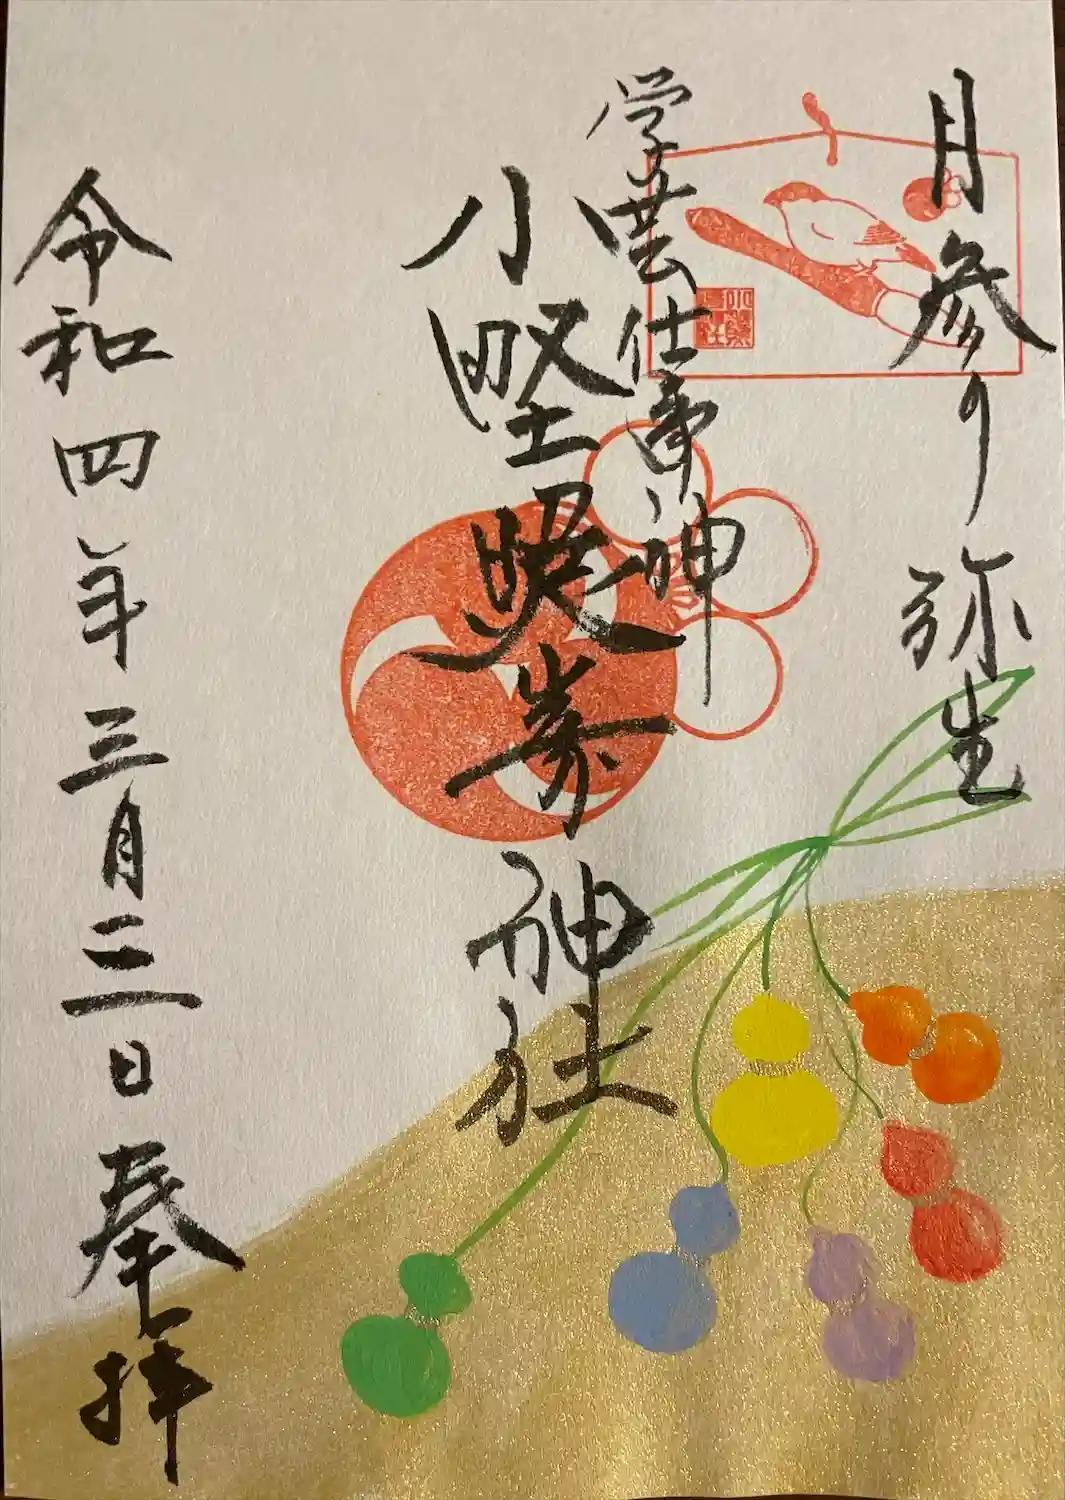 月参り 弥生
学芸仕事神
小野照崎神社
令和四年三月三日奉拝